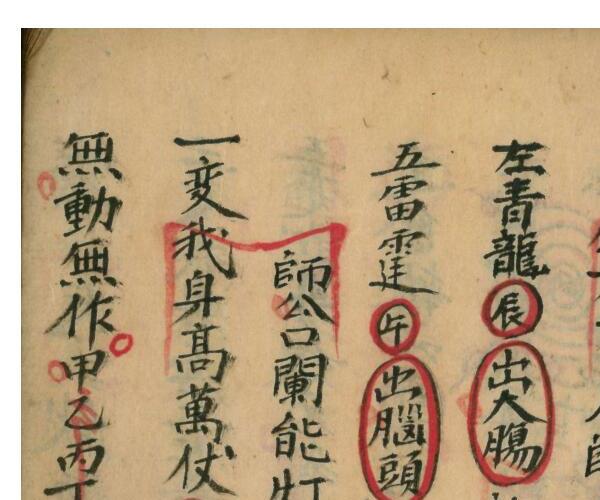 左青龍辰出大腸
五雷霆午出腦頭
師公闌能
一变我身高萬仗
無動無作甲乙丙丁